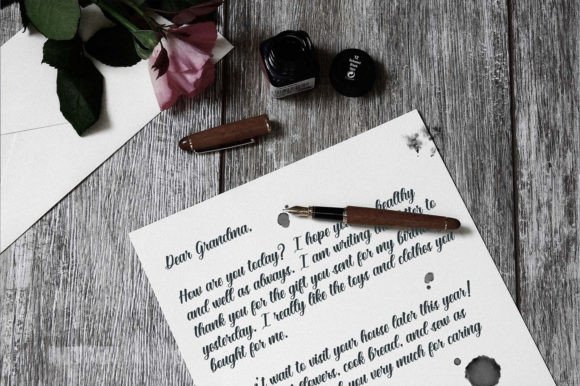 Dear Grandma,
How are you today? I hope healthy
and well as always. I am writing to
thank you for the gift you sent for my
yesterday. I really like the toys and clothes you
bought for me.
wait to visit your house later this year!
flowers, cook bread, and sew as
you very much for caring